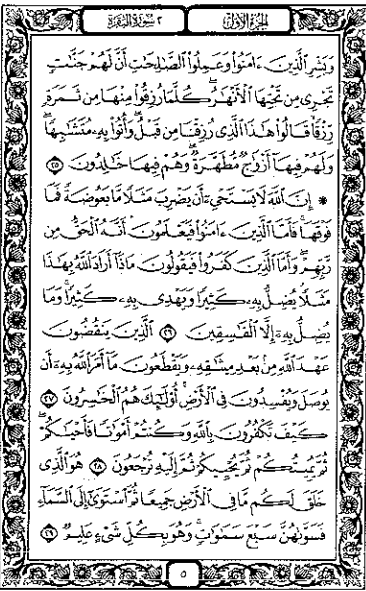 الجزء الأول
٢ سورة البقرة
وَبَشِّرِ الَّذِينَ ءَامَنُوا وَعَمِلُوا الصَّالِحَاتِ أَنَّ لَهُمْ جَنَّاتٍ
تَجْرِي مِن تَحْتِهَا الْأَنْهَارُ كُلَّمَا رُزِقُوا مِنْهَا مِن ثَمَرَةٍ
رِّزْقًا قَالُوا هَٰذَا الَّذِي رُزِقْنَا مِن قَبْلُ وَأُتُوا بِهِ مُتَشَابِهًا
وَلَهُمْ فِيهَا أَزْوَاجٌ مُّطَهَّرَةٌ وَهُمْ فِيهَا خَالِدُونَ ٢٥
* إِنَّ اللَّهَ لَا يَسْتَحْيِي أَن يَضْرِبَ مَثَلًا مَّا بَعُوضَةً فَمَا
فَوْقَهَا فَأَمَّا الَّذِينَ ءَامَنُوا فَيَعْلَمُونَ أَنَّهُ الْحَقُّ مِن
رَّبِّهِمْ وَأَمَّا الَّذِينَ كَفَرُوا فَيَقُولُونَ مَاذَا أَرَادَ اللَّهُ بِهَٰذَا
مَثَلًا يُضِلُّ بِهِ كَثِيرًا وَيَهْدِي بِهِ كَثِيرًا وَمَا
يُضِلُّ بِهِ إِلَّا الْفَاسِقِينَ ٢٦ الَّذِينَ يَنقُضُونَ
عَهْدَ اللَّهِ مِن بَعْدِ مِيثَاقِهِ وَيَقْطَعُونَ مَا أَمَرَ اللَّهُ بِهِ أَن
يُوصَلَ وَيُفْسِدُونَ فِي الْأَرْضِ أُولَٰئِكَ هُمُ الْخَاسِرُونَ ٢٧
كَيْفَ تَكْفُرُونَ بِاللَّهِ وَكُنتُمْ أَمْوَاتًا فَأَحْيَاكُمْ
ثُمَّ يُمِيتُكُمْ ثُمَّ يُحْيِيكُمْ ثُمَّ إِلَيْهِ تُرْجَعُونَ ٢٨ هُوَ الَّذِي
خَلَقَ لَكُم مَّا فِي الْأَرْضِ جَمِيعًا ثُمَّ اسْتَوَىٰ إِلَى السَّمَاءِ
فَسَوَّاهُنَّ سَبْعَ سَمَاوَاتٍ وَهُوَ بِكُلِّ شَيْءٍ عَلِيمٌ ٢٩
٥